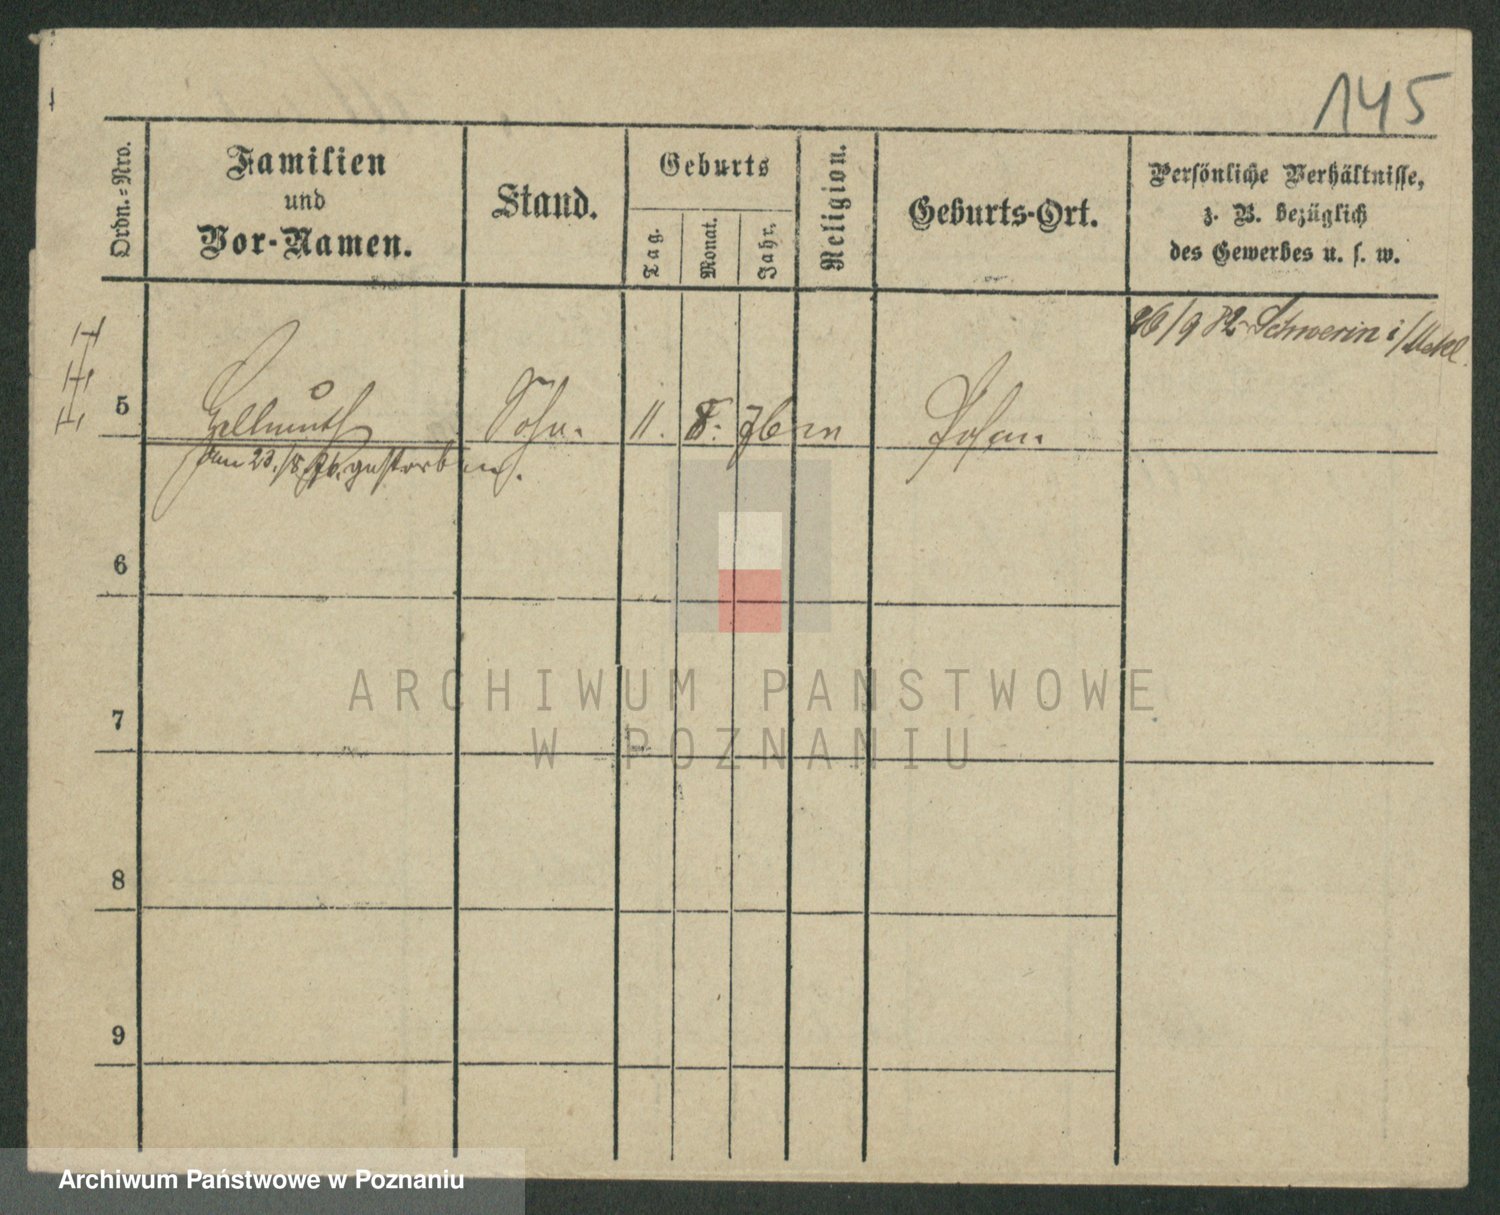 145
Ordn.-Nro.
Familien
und
Vor-Namen.
Stand.
Geburts
Tag.
Monat.
Jahr.
Religion.
Geburts-Ort.
Persönliche Verhältnisse,
z. B. bezüglich
des Gewerbes u. s. w.
26/9 82 Schwerin i/Meckl.
5 Hellmuth Sohn. 11. 8. 76 Posen.
am 23./8. 76. gestorben.
6
7
8
9
ARCHIWUM PANSTWOWE
W POZNANIU
Archiwum Państwowe w Poznaniu